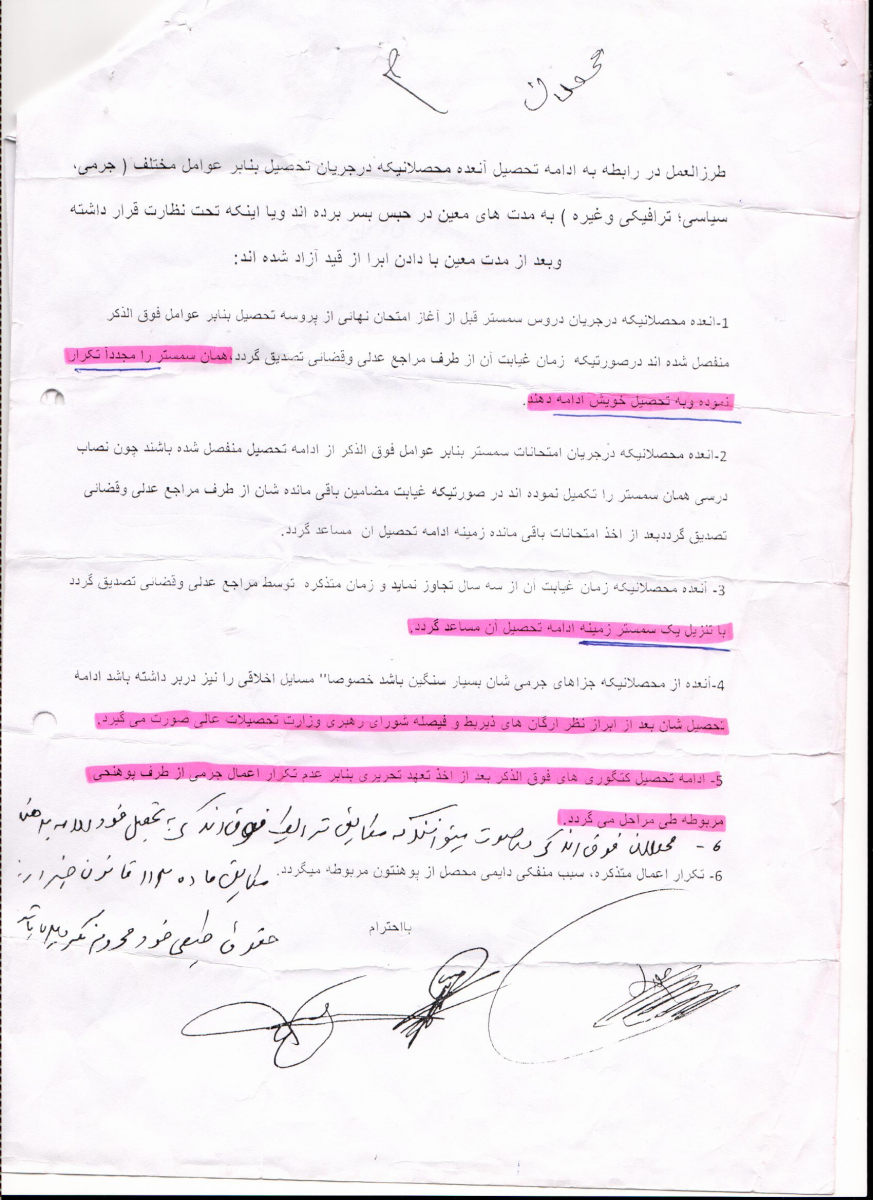 محصلان
طرزالعمل در رابطه به ادامه تحصیل آنعده محصلانیکه درجریان تحصیل بنابر عوامل مختلف ( جرمی،
سیاسی؛ ترافیکی وغیره ) به مدت های معین در حبس بسر برده اند ویا اینکه تحت نظارت قرار داشته
وبعد از مدت معین با دادن ابرا از قید آزاد شده اند:
1-انعده محصلانیکه درجریان دروس سمستر قبل از آغاز امتحان نهائی از پروسه تحصیل بنابر عوامل فوق الذکر
منفصل شده اند درصورتیکه زمان غیابت آن از طرف مراجع عدلی وقضائی تصدیق گردد،همان سمستر را مجدداً تکرار
نموده وبه تحصیل خویش ادامه دهند.
2-انعده محصلانیکه درجریان امتحانات سمستر بنابر عوامل فوق الذکر از ادامه تحصیل منفصل شده باشند چون نصاب
درسی همان سمستر را تکمیل نموده اند در صورتیکه غیابت مضامین باقی مانده شان از طرف مراجع عدلی وقضائی
تصدیق گرددبعد از اخذ امتحانات باقی مانده زمینه ادامه تحصیل ان مساعد گردد.
3- آنعده محصلانیکه زمان غیابت آن از سه سال تجاوز نماید و زمان متذکره توسط مراجع عدلی وقضائی تصدیق گردد
با تنزیل یک سمستر زمینه ادامه تحصیل آن مساعد گردد.
4-آنعده از محصلانیکه جزاهای جرمی شان بسیار سنگین باشد خصوصا'' مسایل اخلاقی را نیز دربر داشته باشد ادامه
تحصیل شان بعد از ابراز نظر ارگان های ذیربط و فیصله شورای رهبری وزارت تحصیلات عالی صورت می گیرد.
5- ادامه تحصیل کتگوری های فوق الذکر بعد از اخذ تعهد تحریری بنابر عدم تکرار اعمال جرمی از طرف پوهنحی
مربوطه طی مراحل می گردد.
6- محصلان فوق الذکر در صورت میتوانند که مطابق شرایط فوق الذکر به تحصیل خود ادامه بدهند
مطابق ماده ۱۱۳ قانون جزا از
6- تکرار اعمال متذکره، سبب منفکی دایمی محصل از پوهنتون مربوطه میگردد.
حقوق طبعی خود محروم نگردیده باشد
بااحترام